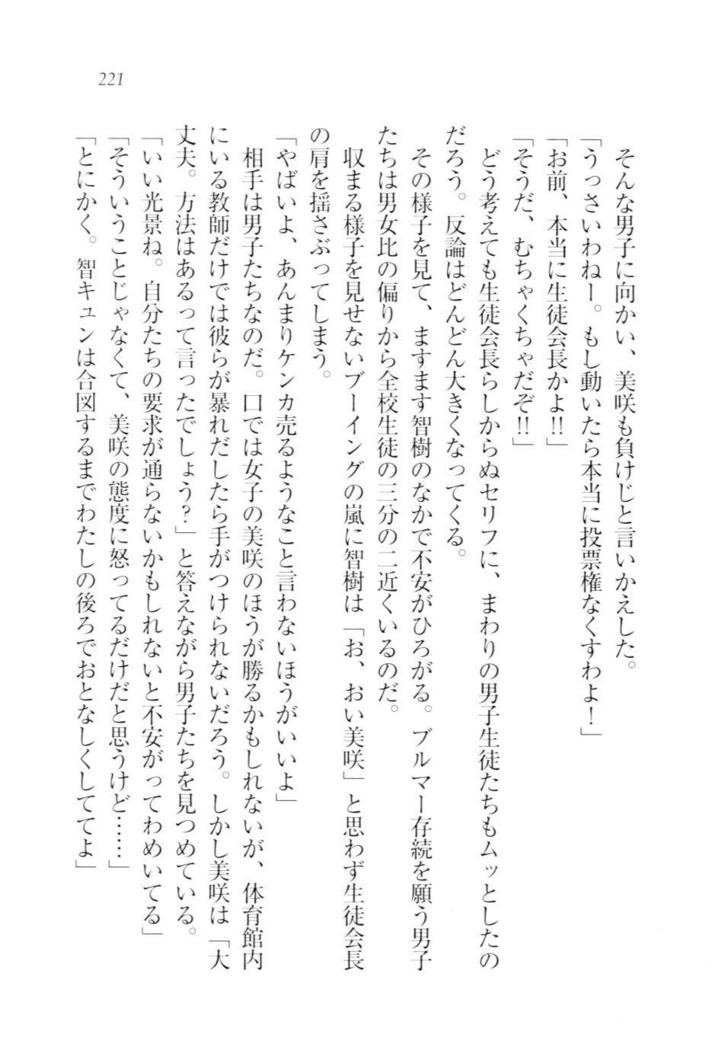 221
そんな男子に向かい、美咲も負けじと言いかえした。
「うっさいわねー。もし動いたら本当に投票権なくすわよ！」
「お前、本当に生徒会長かよ!!」
「そうだ、むちゃくちゃだぞ!!」
どう考えても生徒会長らしからぬセリフに、まわりの男子生徒たちもムッとしたの
だろう。反論はどんどん大きくなってくる。
その様子を見て、ますます智樹のなかで不安がひろがる。ブルマー存続を願う男子
たちは男女比の偏りから全校生徒の三分の二近くいるのだ。
収まる様子を見せないブーイングの嵐に智樹は「お、おい美咲」と思わず生徒会長
の肩を揺さぶってしまう。
「やばいよ、あんまりケンカ売るようなこと言わないほうがいいよ」
相手は男子たちなのだ。口では女子の美咲のほうが勝るかもしれないが、体育館内
にいる教師だけでは彼らが暴れだしたら手がつけられないだろう。しかし美咲は「大
丈夫。方法はあるって言ったでしょう？」と答えながら男子たちを見つめている。
「いい光景ね。自分たちの要求が通らないかもしれないと不安がってわめいてる」
「そういうことじゃなくて、美咲の態度に怒ってるだけだと思うけど……」
「とにかく。智キュンは合図するまでわたしの後ろでおとなしくしててよ」